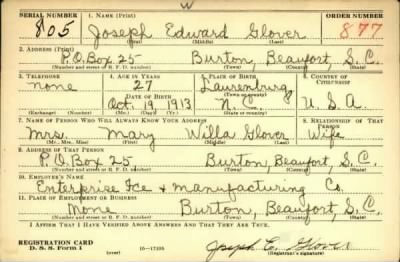 W
SERIAL NUMBER 1. NAME (Print) ORDER NUMBER
805 Joseph Edward Glover 877
(First) (Middle) (Last)
2. ADDRESS (Print)
P.O. Box 25 Burton, Beaufort, S.C.
(Number and street or R. F. D. number) (Town) (County) (State)
3. TELEPHONE 4. AGE IN YEARS 5. PLACE OF BIRTH 6. COUNTRY OF CITIZENSHIP
none 27 Laurenburg
DATE OF BIRTH (Town or county)
Oct. 19, 1913 N.C. U.S.A.
(Exchange) (Number) (Mo.) (Day) (Yr.) (State or country)
7. NAME OF PERSON WHO WILL ALWAYS KNOW YOUR ADDRESS 8. RELATIONSHIP OF THAT PERSON
Mrs. Mary Willa Glover Wife
(Mr., Mrs., Miss) (First) (Middle) (Last)
9. ADDRESS OF THAT PERSON
P.O. Box 25 Burton, Beaufort, S.C.
(Number and street or R. F. D. number) (Town) (County) (State)
10. EMPLOYER'S NAME
Enterprise Ice & Manufacturing Co.
11. PLACE OF EMPLOYMENT OR BUSINESS
None Burton, Beaufort, S.C.
(Number and street or R. F. D. number) (Town) (County) (State)
I AFFIRM THAT I HAVE VERIFIED ABOVE ANSWERS AND THAT THEY ARE TRUE.
REGISTRATION CARD
D. S. S. Form 1 (over) Joseph E. Glover
(Registrant's signature)